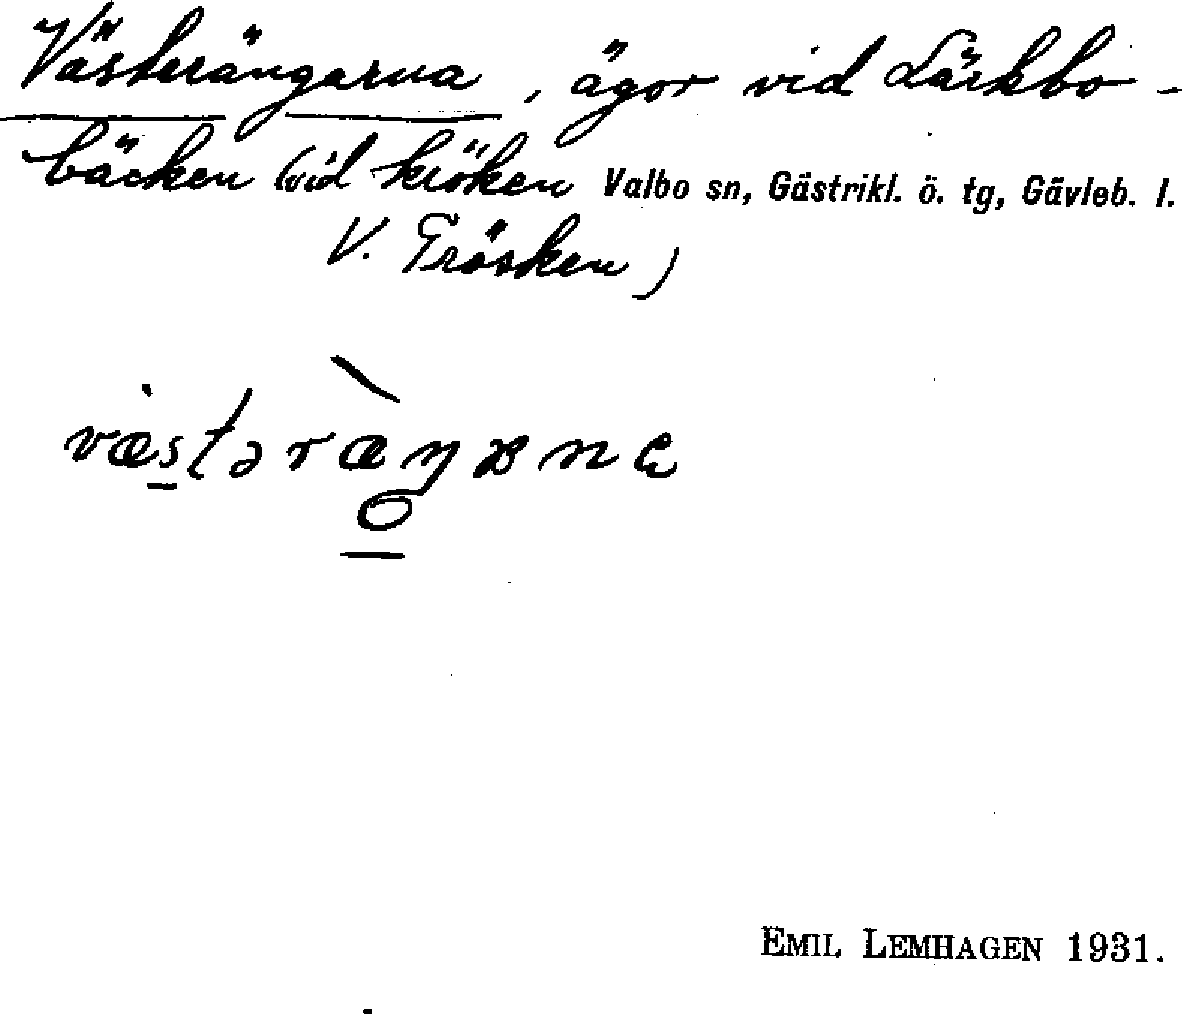 Västerängarna, ägor vid Lärkbo-
bäcken (vid kröken Valbo sn, Gästrikl. ö. tg, Gävleb. l.
V. Trösken)
væstəræŋ
EMIL LEMHAGEN 1931.